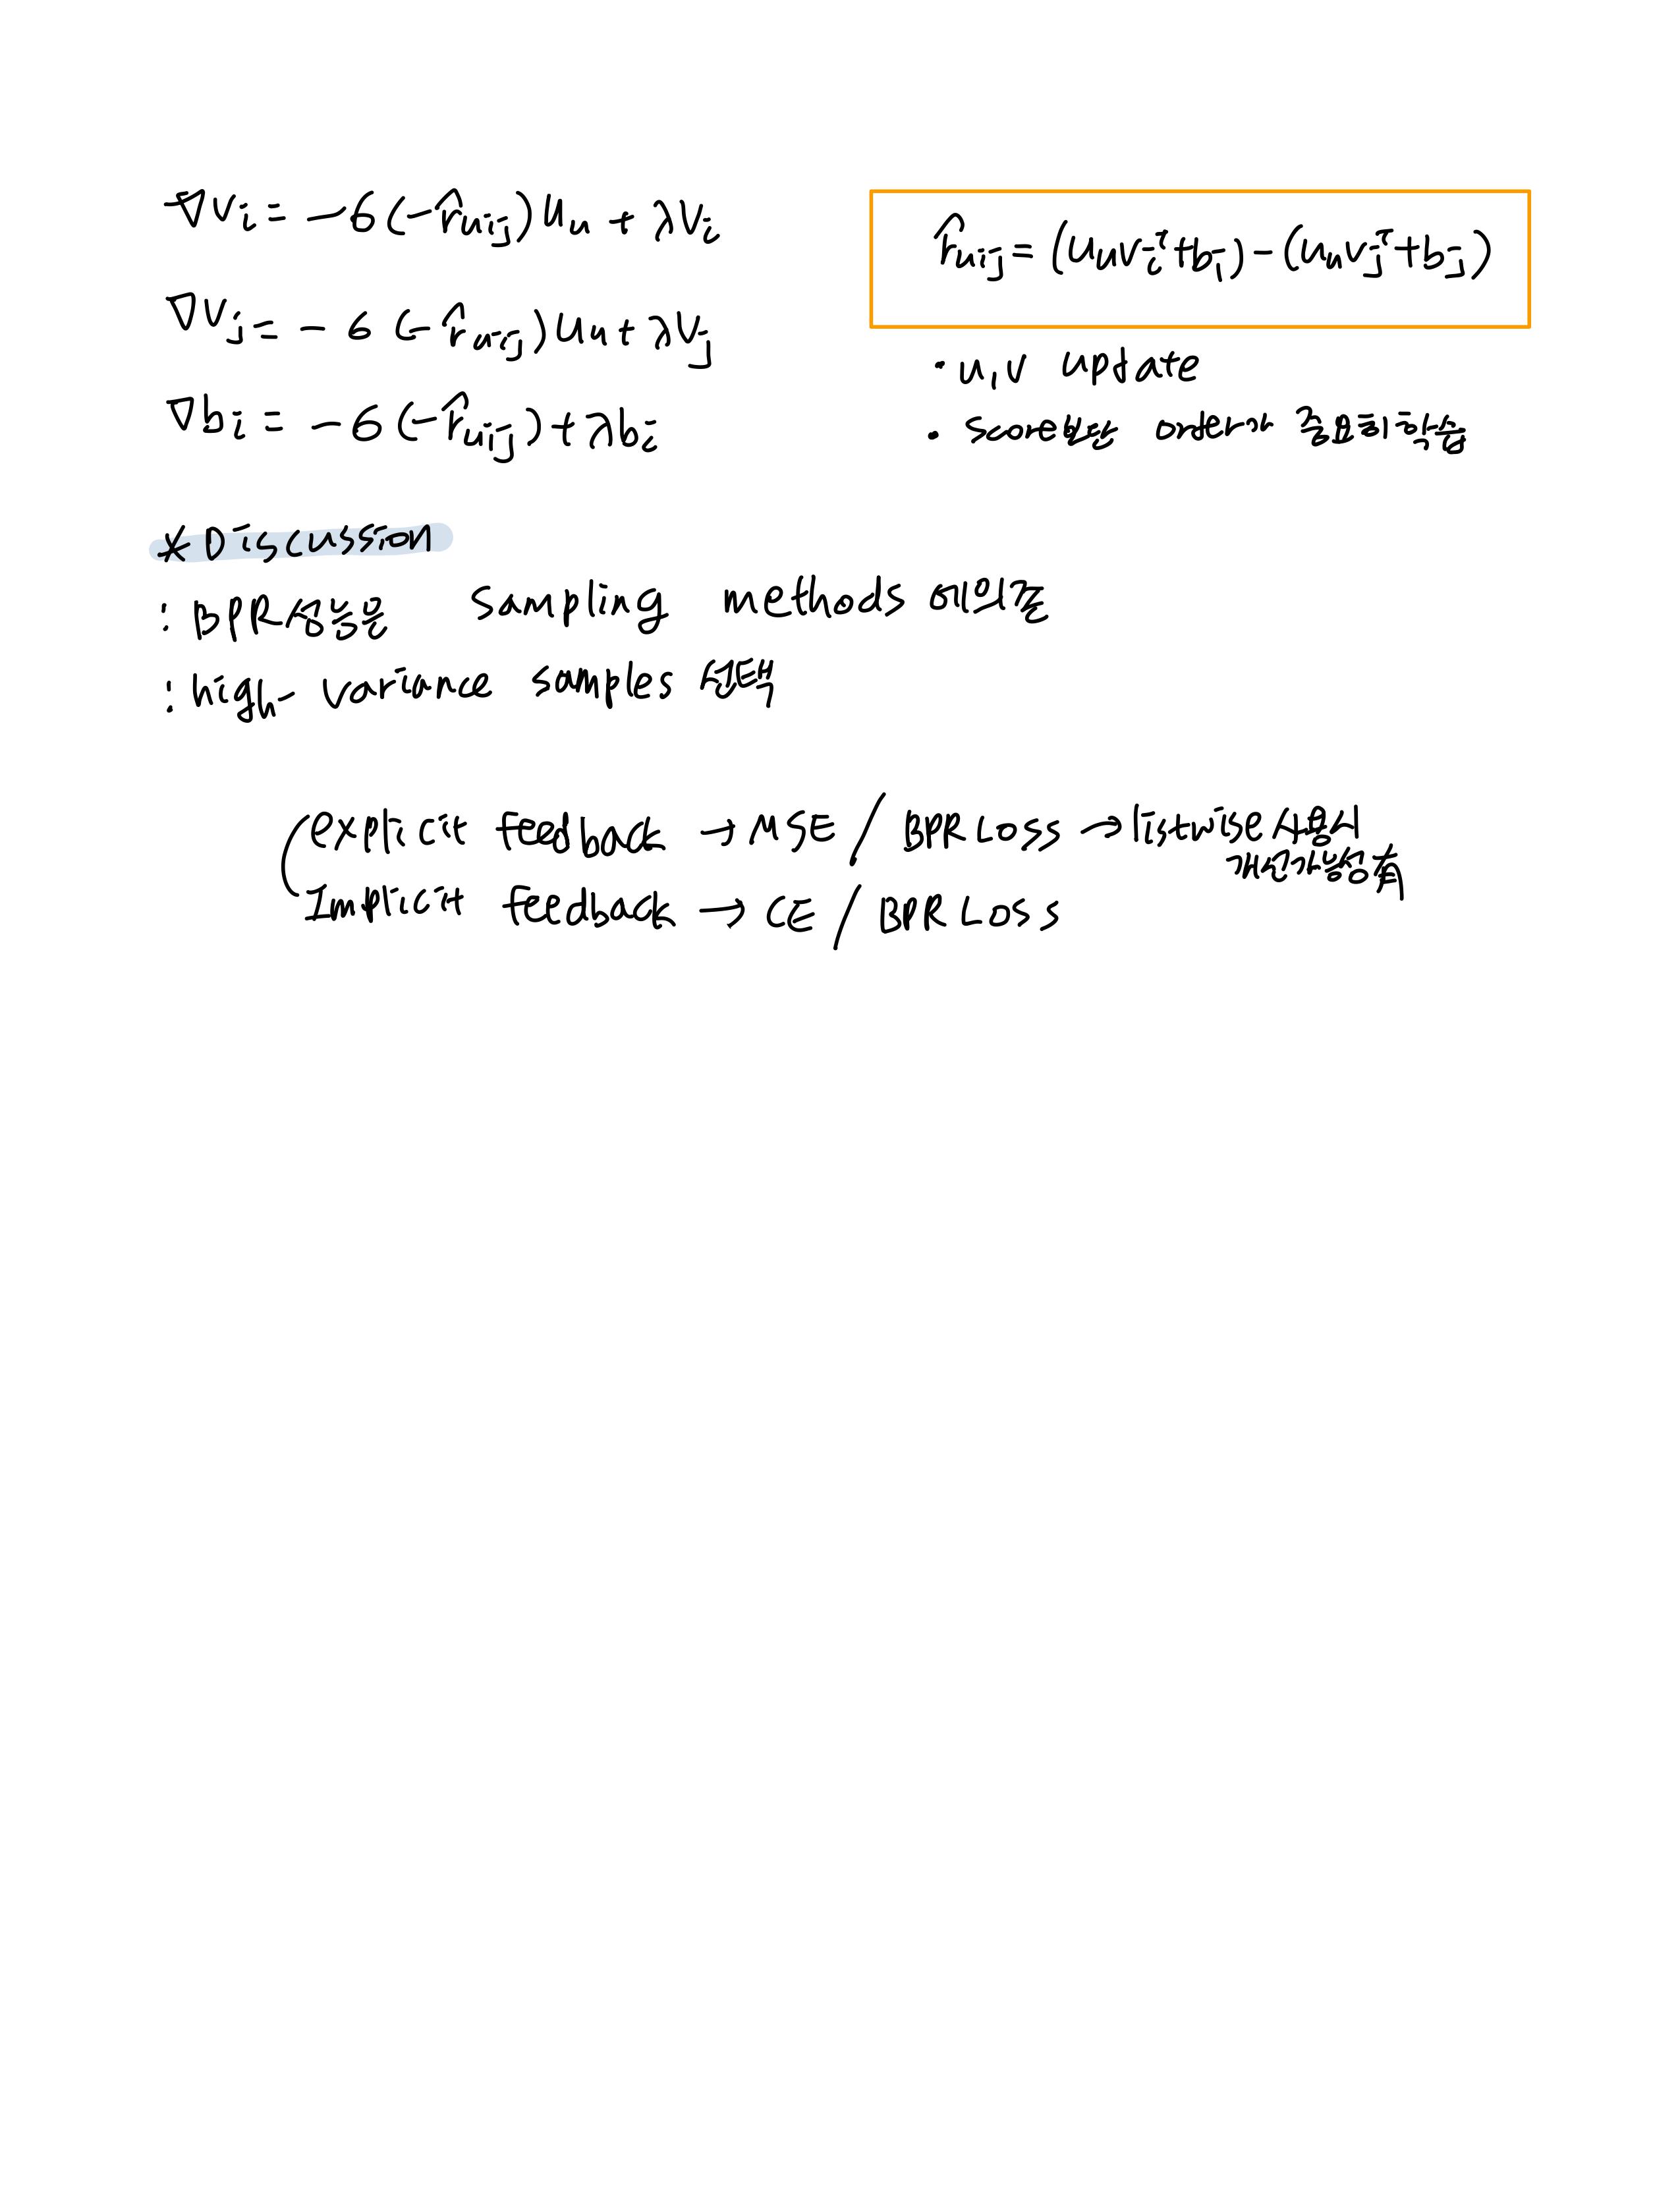 ∇v_i = -σ(-r̂_uij)u_u + λv_i
∇v_j = -σ(-r̂_uij)u_u + λv_j
∇b_i = -σ(-r̂_uij) + λb_i
r̂_uij = (u_u v_i^T + b_i) - (u_u v_j^T + b_j)
• u, v update
• score보단 order가 잘맞춰학습
* Discussion
: BPR성능은 sampling methods에의존
: high-variance samples 선택
explicit feedback → MSE / BPR Loss → listwise 사용시
개선가능성有
Implicit feedback → CE / BPR Loss